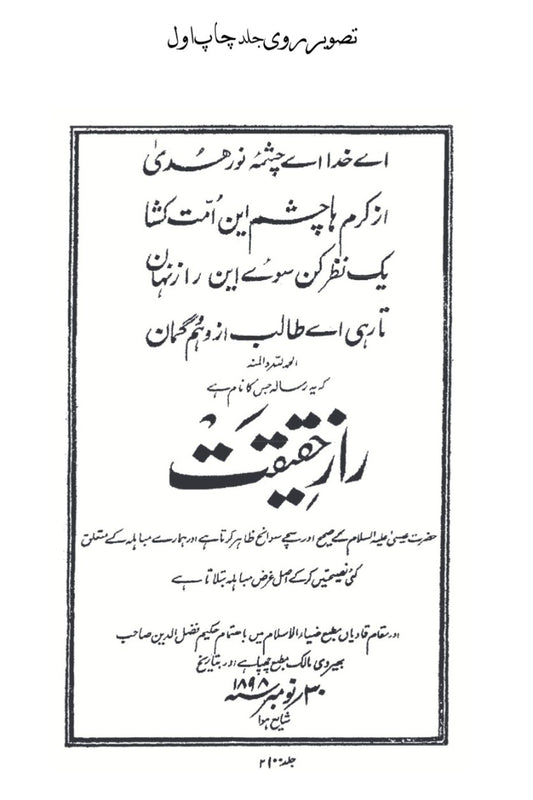 تصویر روی جلد چاپ اول
اے خدا اے چشمۂ نور ھُدیٰ
از کرم ہا چشم این اُمّت کشا
یک نظر کن سوئے این راز نہان
تا رہی اے طالب از وہم و گمان
الحمد للہ و المنہ
کہ یہ رسالہ جس کا نام ہے
راز حقیقت
حضرت عیسیٰ علیہ السلام کے صحیح اور سچے سوانح ظاہر کرتا ہے اور ہمارے مباہلہ کے متعلق
کئی نصیحتیں کر کے اصل غرض مباہلہ بتلاتا ہے
اور مقام قادیاں مطبع ضیاء الاسلام میں باہتمام حکیم فضل الدین صاحب
بھیروی مالک مطبع چھپا ہے اور بتاریخ
۳۰ نومبر ۱۸۹۸
شایع ہوا
جلد ۲۱۰۰